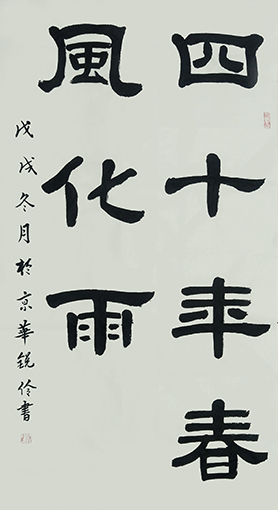 四十年春
風化雨
戊戌冬月於京華銳伶書